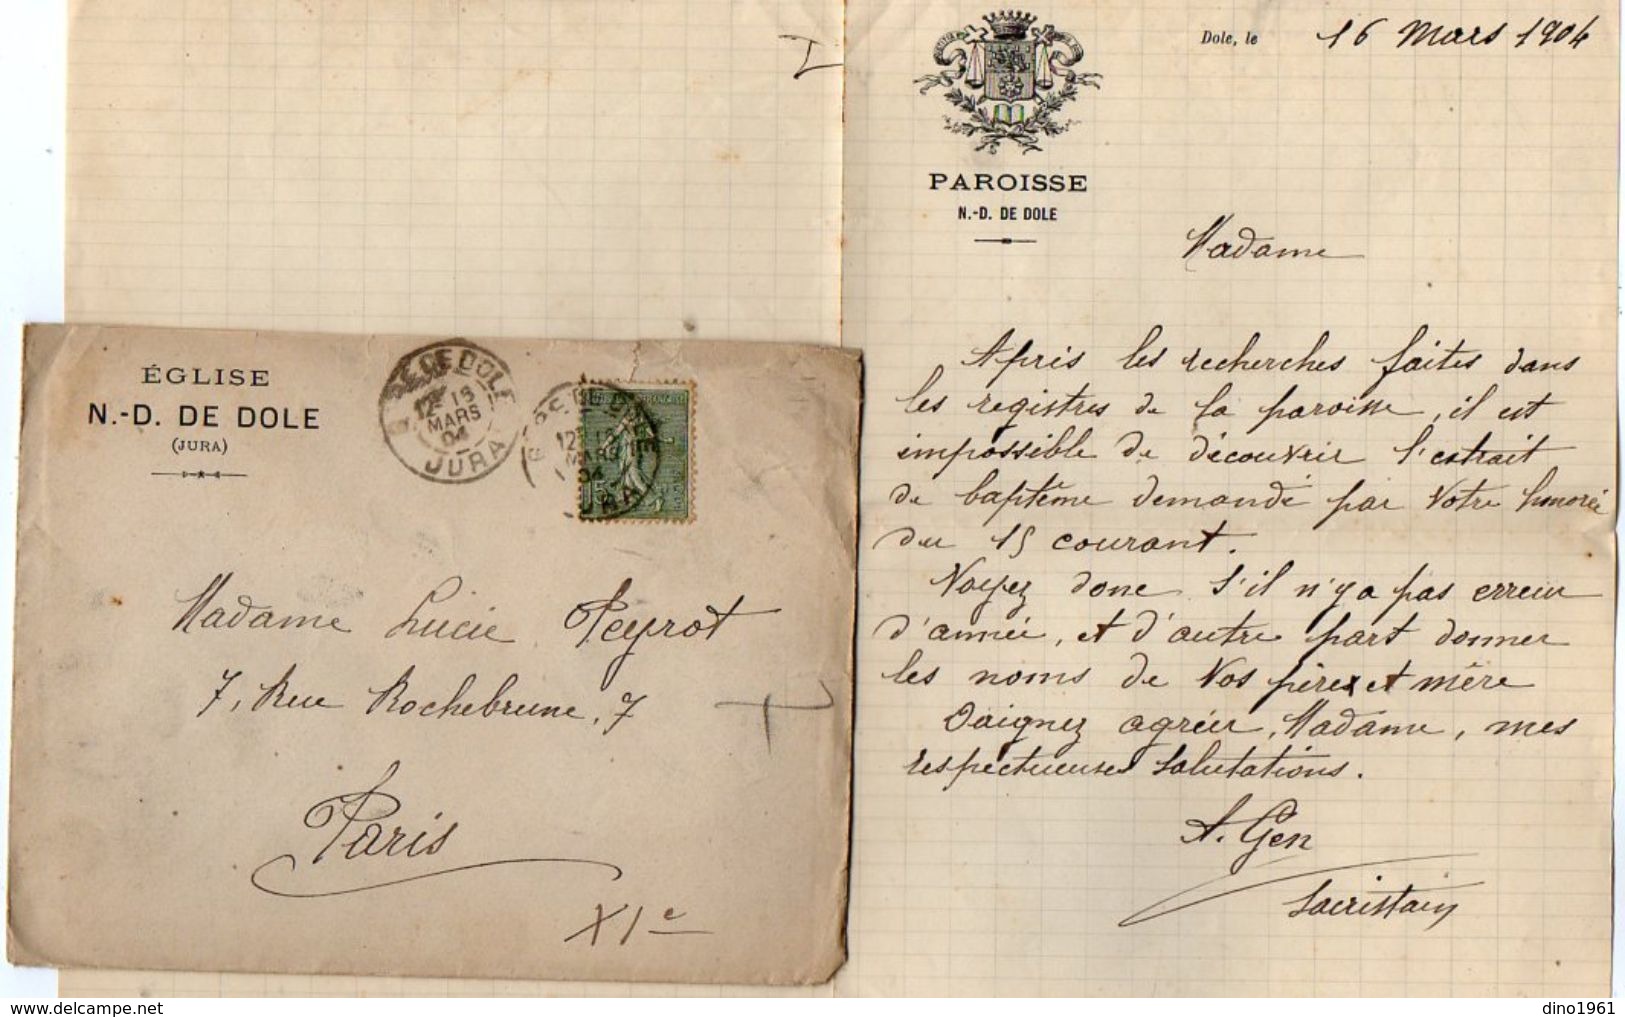 ÉGLISE
N.-D. DE DOLE
(JURA)
GARE DE DOLE
12 16
MARS
04
JURA
MARS
04
Madame Lucie Peyrot
7, Rue Rochebrune, 7
Paris
XIe
PAROISSE
N.-D. DE DOLE
Dole, le 16 Mars 1904
Madame
Après les recherches faites dans
les registres de la paroisse, il est
impossible de découvrir l'extrait
de baptême demandé par votre honorée
du 15 courant.
Voyez donc s'il n'y a pas erreur
d'année, et d'autre part donner
les noms de vos père et mère
Daignez agréer, Madame, mes
respectueuses salutations.
A. Gen
Sacristain
dino1961